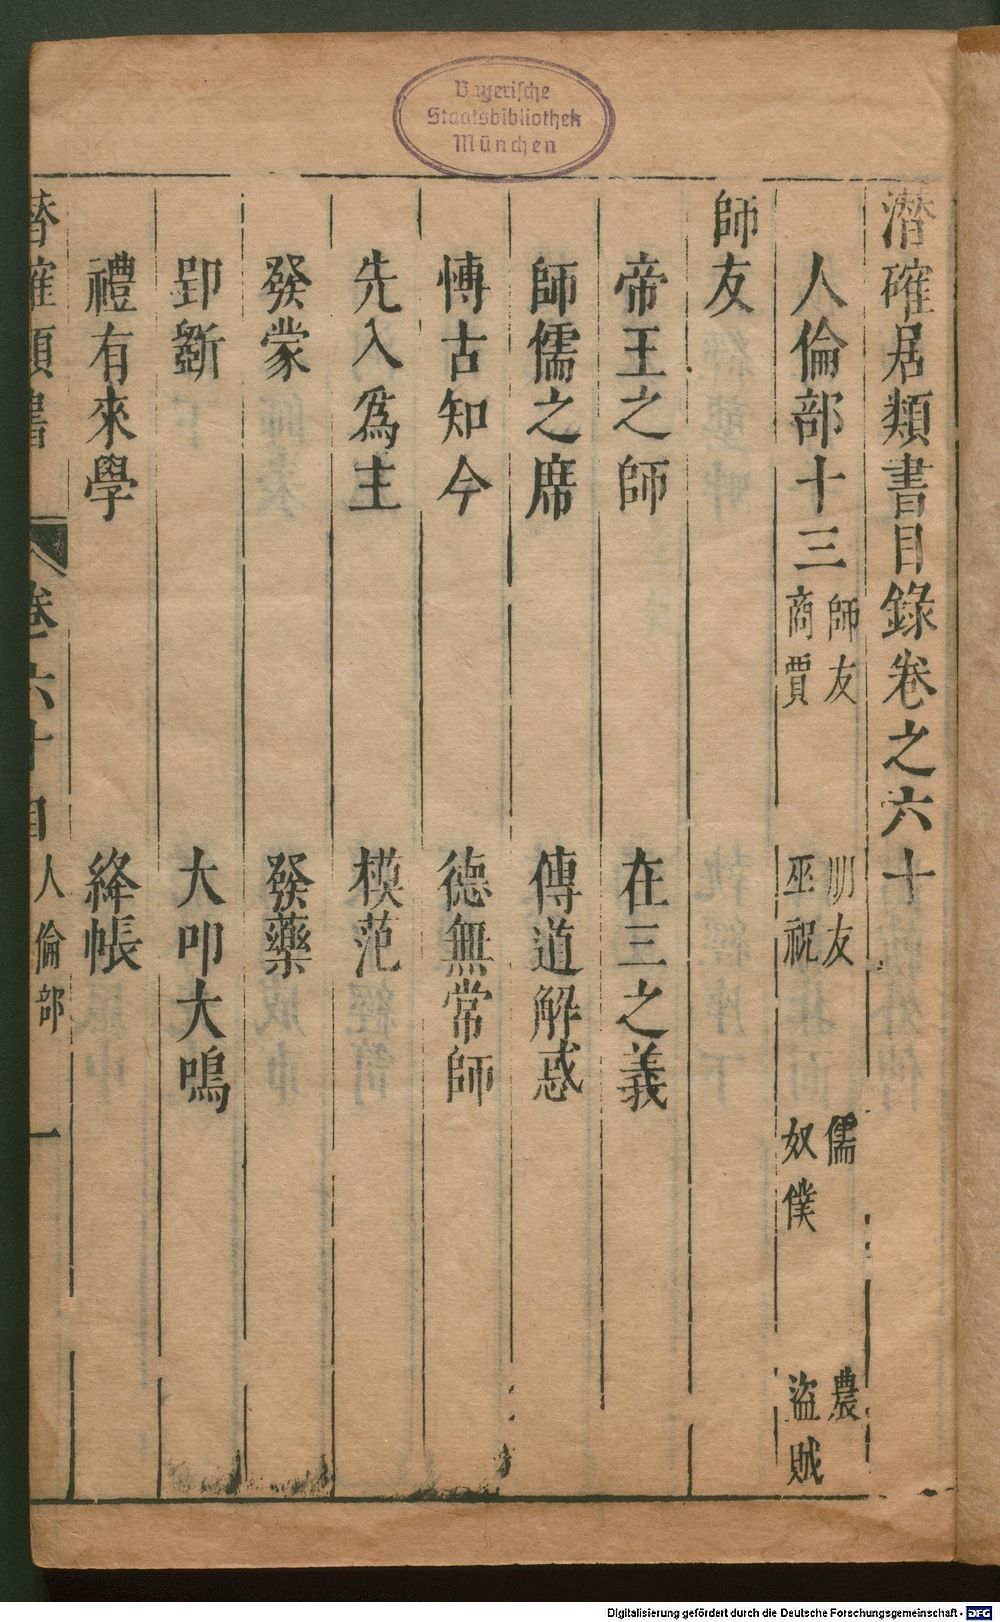 Bayerische
Staatsbibliothek
München
潛確居類書目錄卷之六十
人倫部十三
師友 朋友 儒 農
商賈 巫祝 奴僕 盜賊
師友
帝王之師 在三之義
師儒之席 傳道解惑
愽古知今 德無常師
先入爲主 模范
發蒙 發藥
大叩大鳴
禮有來學 絳帳
潛確類書 卷六十目 人倫部 一
Digitalisierung gefördert durch die Deutsche Forschungsgemeinschaft - DFG